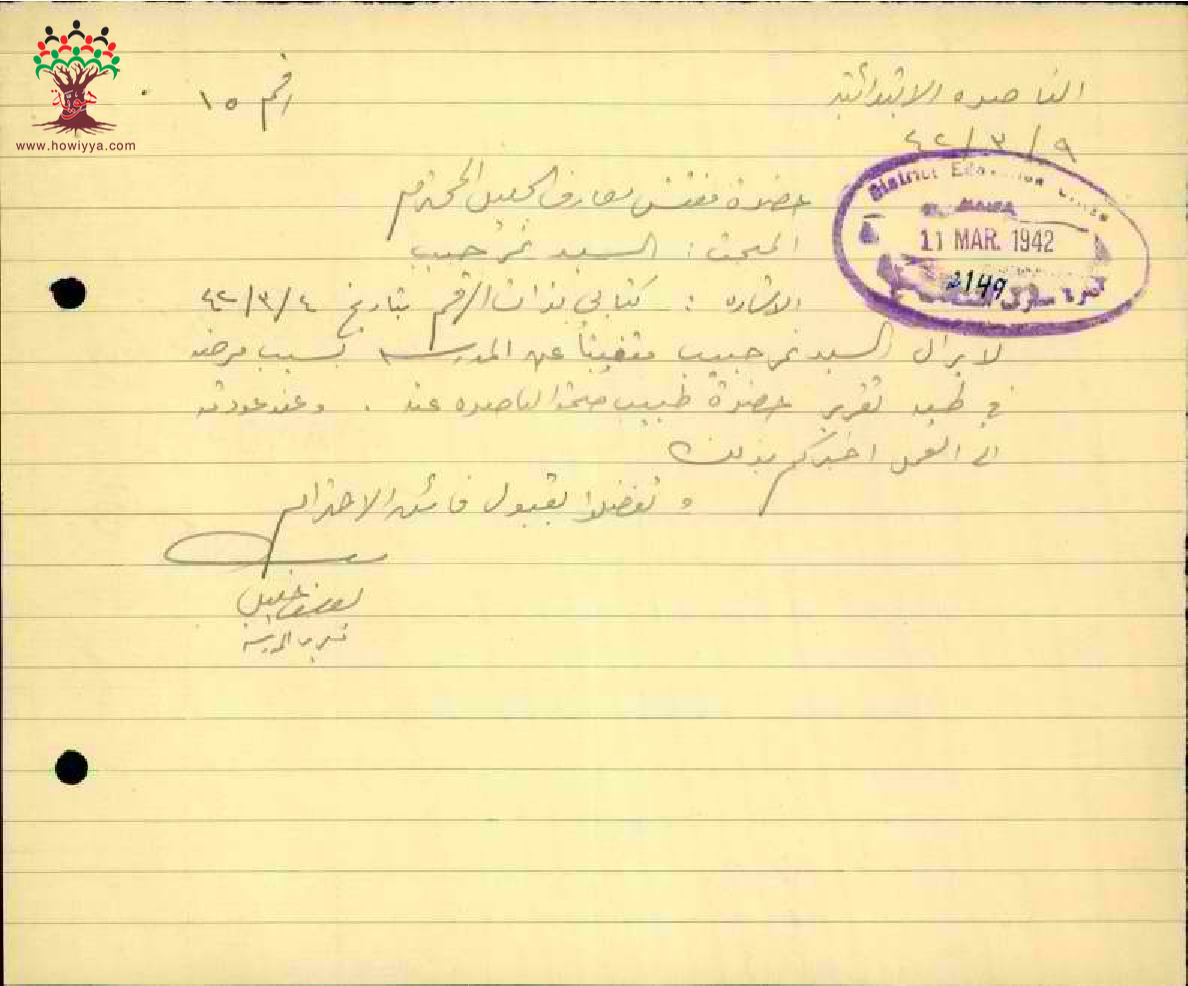 الناصره الابتدائية
رقم ١٥
٩/٣/٤٢
حضرة مفتش معارف الجليل المحترم
المبحث : السيد نمر حبيب
الاشاره : كتابي بذات الرقم بتاريخ ٤/٣/٤٢
لا يزال السيد نمر حبيب متغيباً عن المدرسه بسبب مرضه
في طيه تقرير حضرة طبيب صحة الناصره عنه . وعند عودته
الى العمل اخبركم بذلك
و تفضلوا بقبول فائق الاحترام
خليل
المدرسة
District Education Office
HAIFA
11 MAR. 1942
2149
هوية
www.howiyya.com